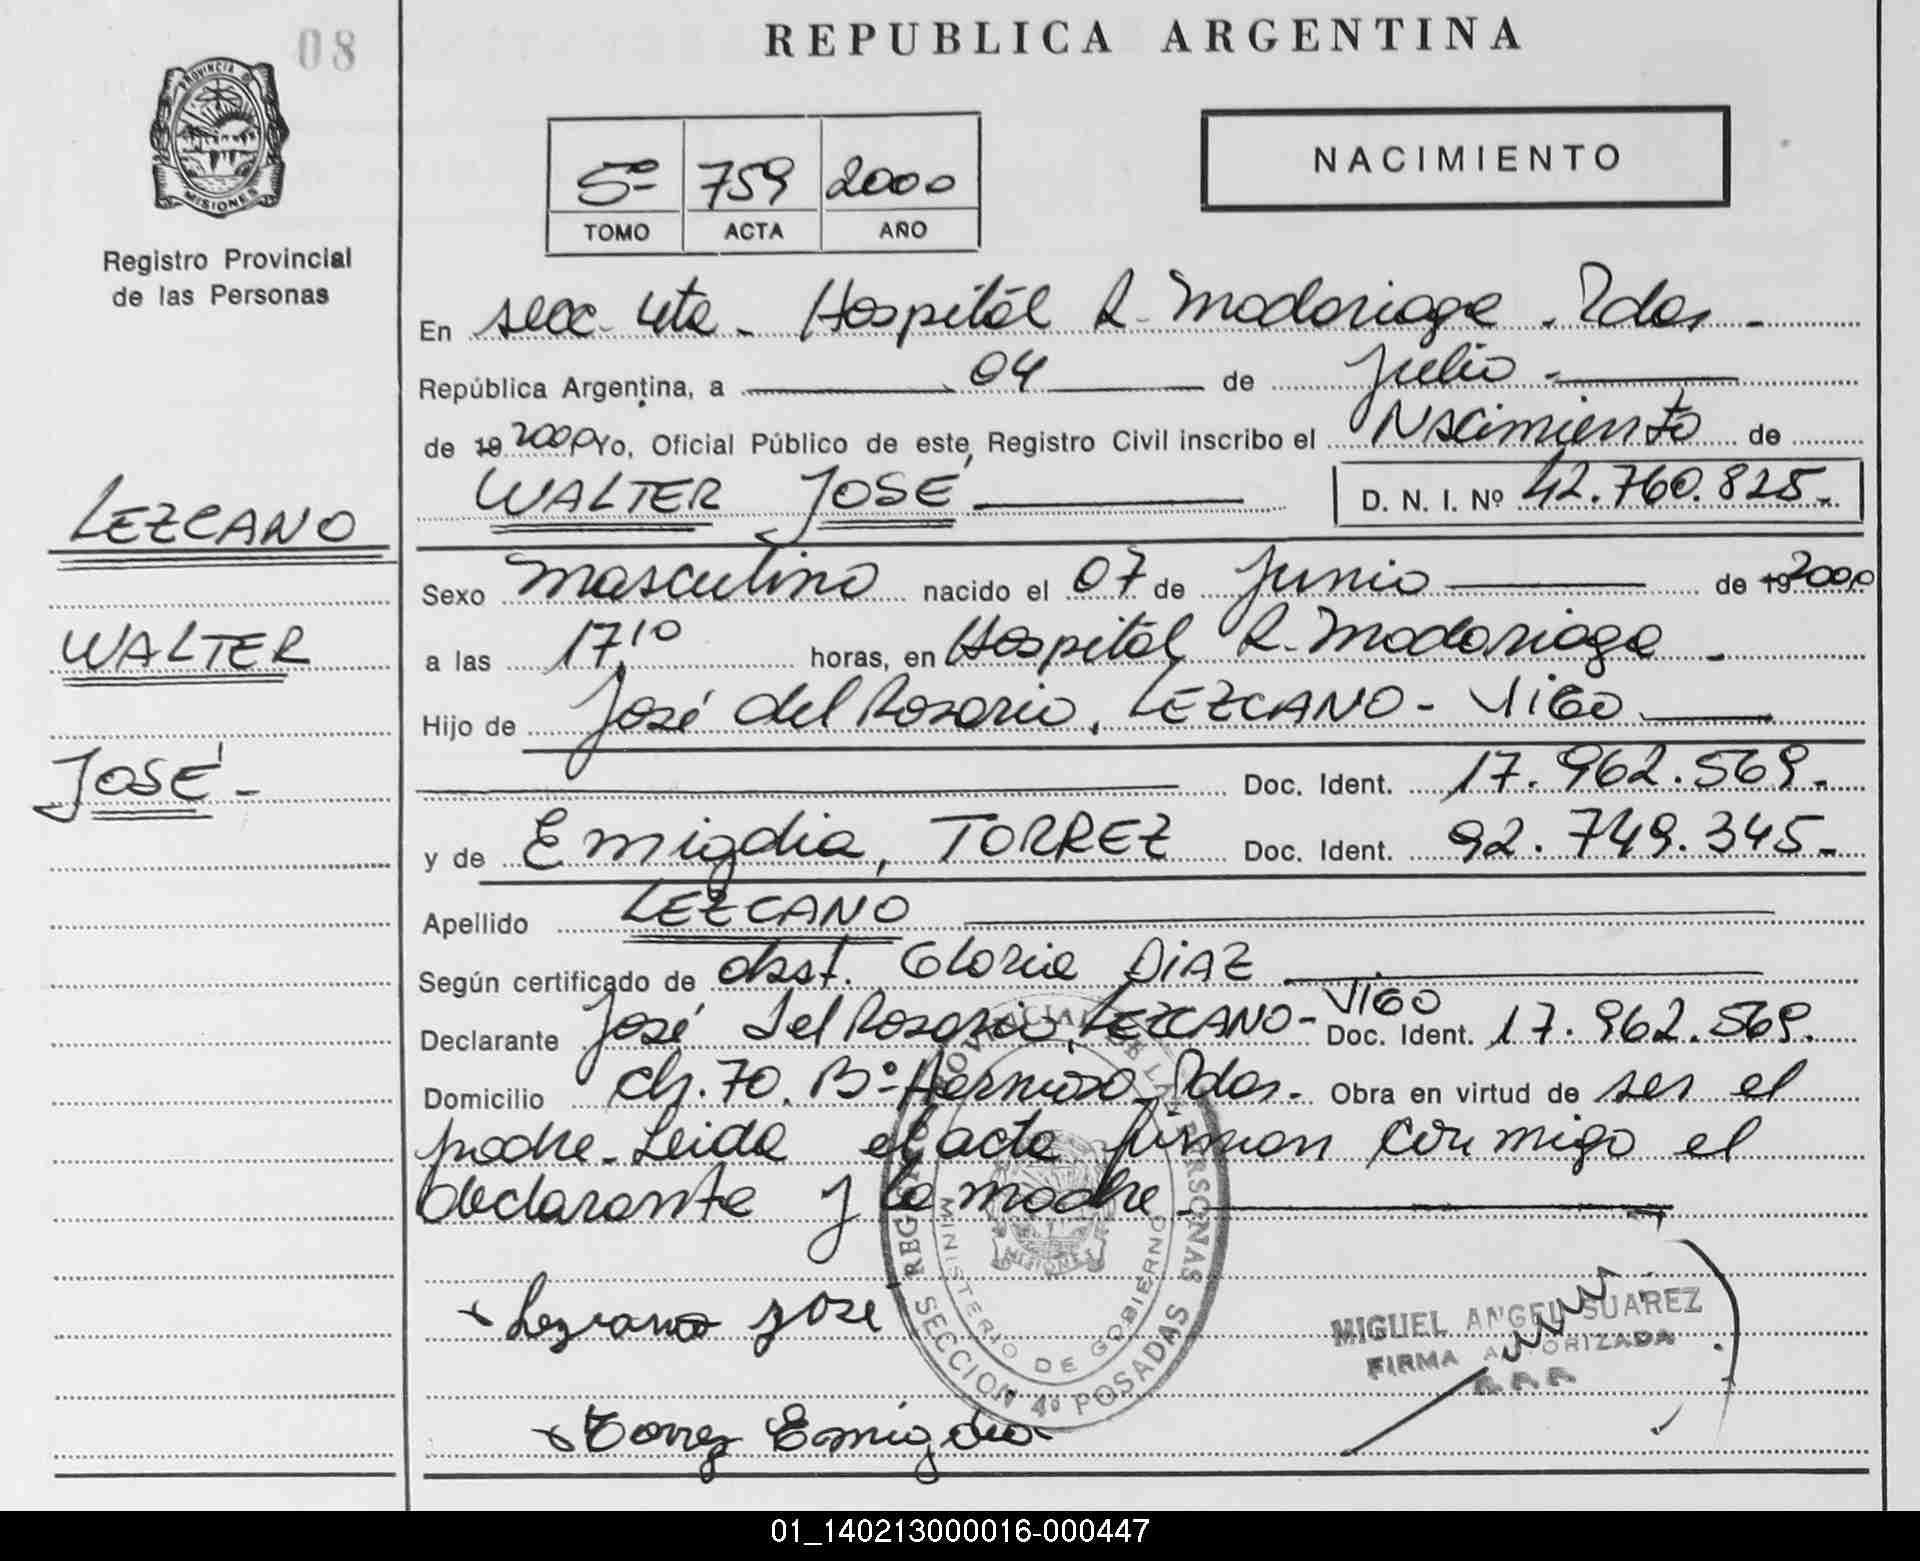 08
REPUBLICA ARGENTINA
PROVINCIA DE
MISIONES
Registro Provincial
de las Personas
5º 759 2000
TOMO ACTA AÑO
NACIMIENTO
En secc. 4ta - Hospitál R. Madariaga. Pdas -
República Argentina, a 04 de Julio -
de 19 2000 Yo, Oficial Público de este Registro Civil inscribo el Nacimiento de
WALTER JOSÉ D. N. I. Nº 42.760.825.-
LEZCANO
WALTER
JOSÉ -
Sexo Masculino nacido el 07 de Junio de 19 2000
a las 17,10 horas, en Hospitál R. Madariaga -
Hijo de José del Rosario, LEZCANO - VIGO
Doc. Ident. 17.962.569.-
y de Emigdia, TORREZ Doc. Ident. 92.749.345.-
Apellido LEZCANO
Según certificado de obst. Gloria DIAZ
Declarante José del Rosario, LEZCANO - VIGO Doc. Ident. 17.962.569.
Domicilio Ch. 70. Bº Hermoso Pdas. - Obra en virtud de ser el
padre - Leida el acta firman conmigo el
declarante y la madre -
REGISTRO PROVINCIAL DE LAS PERSONAS
MINISTERIO DE GOBIERNO
MISIONES
SECCION 4º POSADAS
Lezcano Jose
Torrez Emigdia
MIGUEL ANGEL SUAREZ
FIRMA AUTORIZADA
01_140213000016-000447